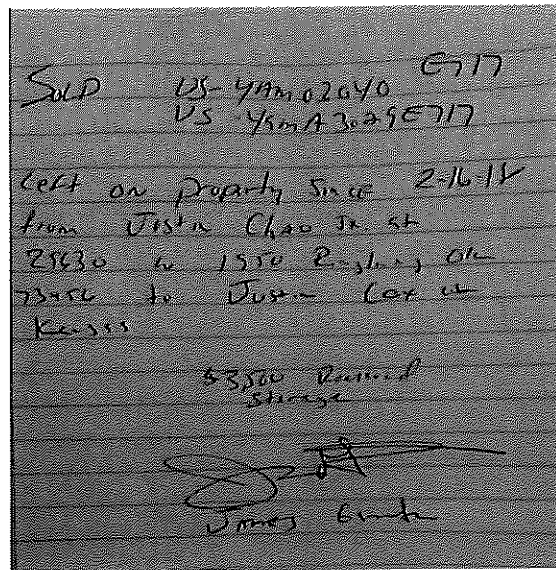 E717
SOLD US-YAM02040
US YAMA3029E717
Left on property since 2-16-15
from Justin Chao Jr at
25630 W 1550 Ringling OK
73456 to Justin Cox in
Kansas
$3,500 Received
Storage
James